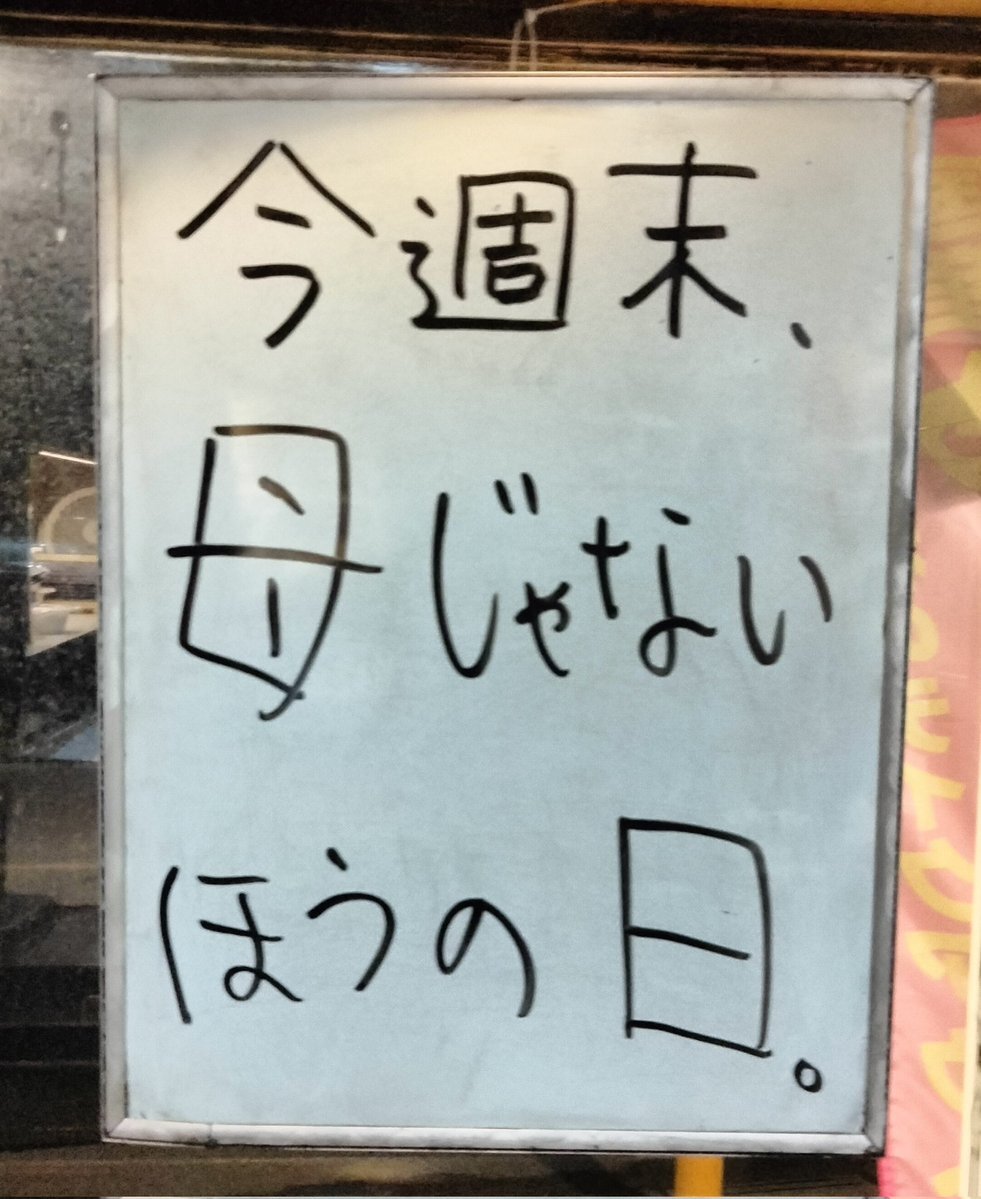 今週末、
母じゃない
ほうの日。